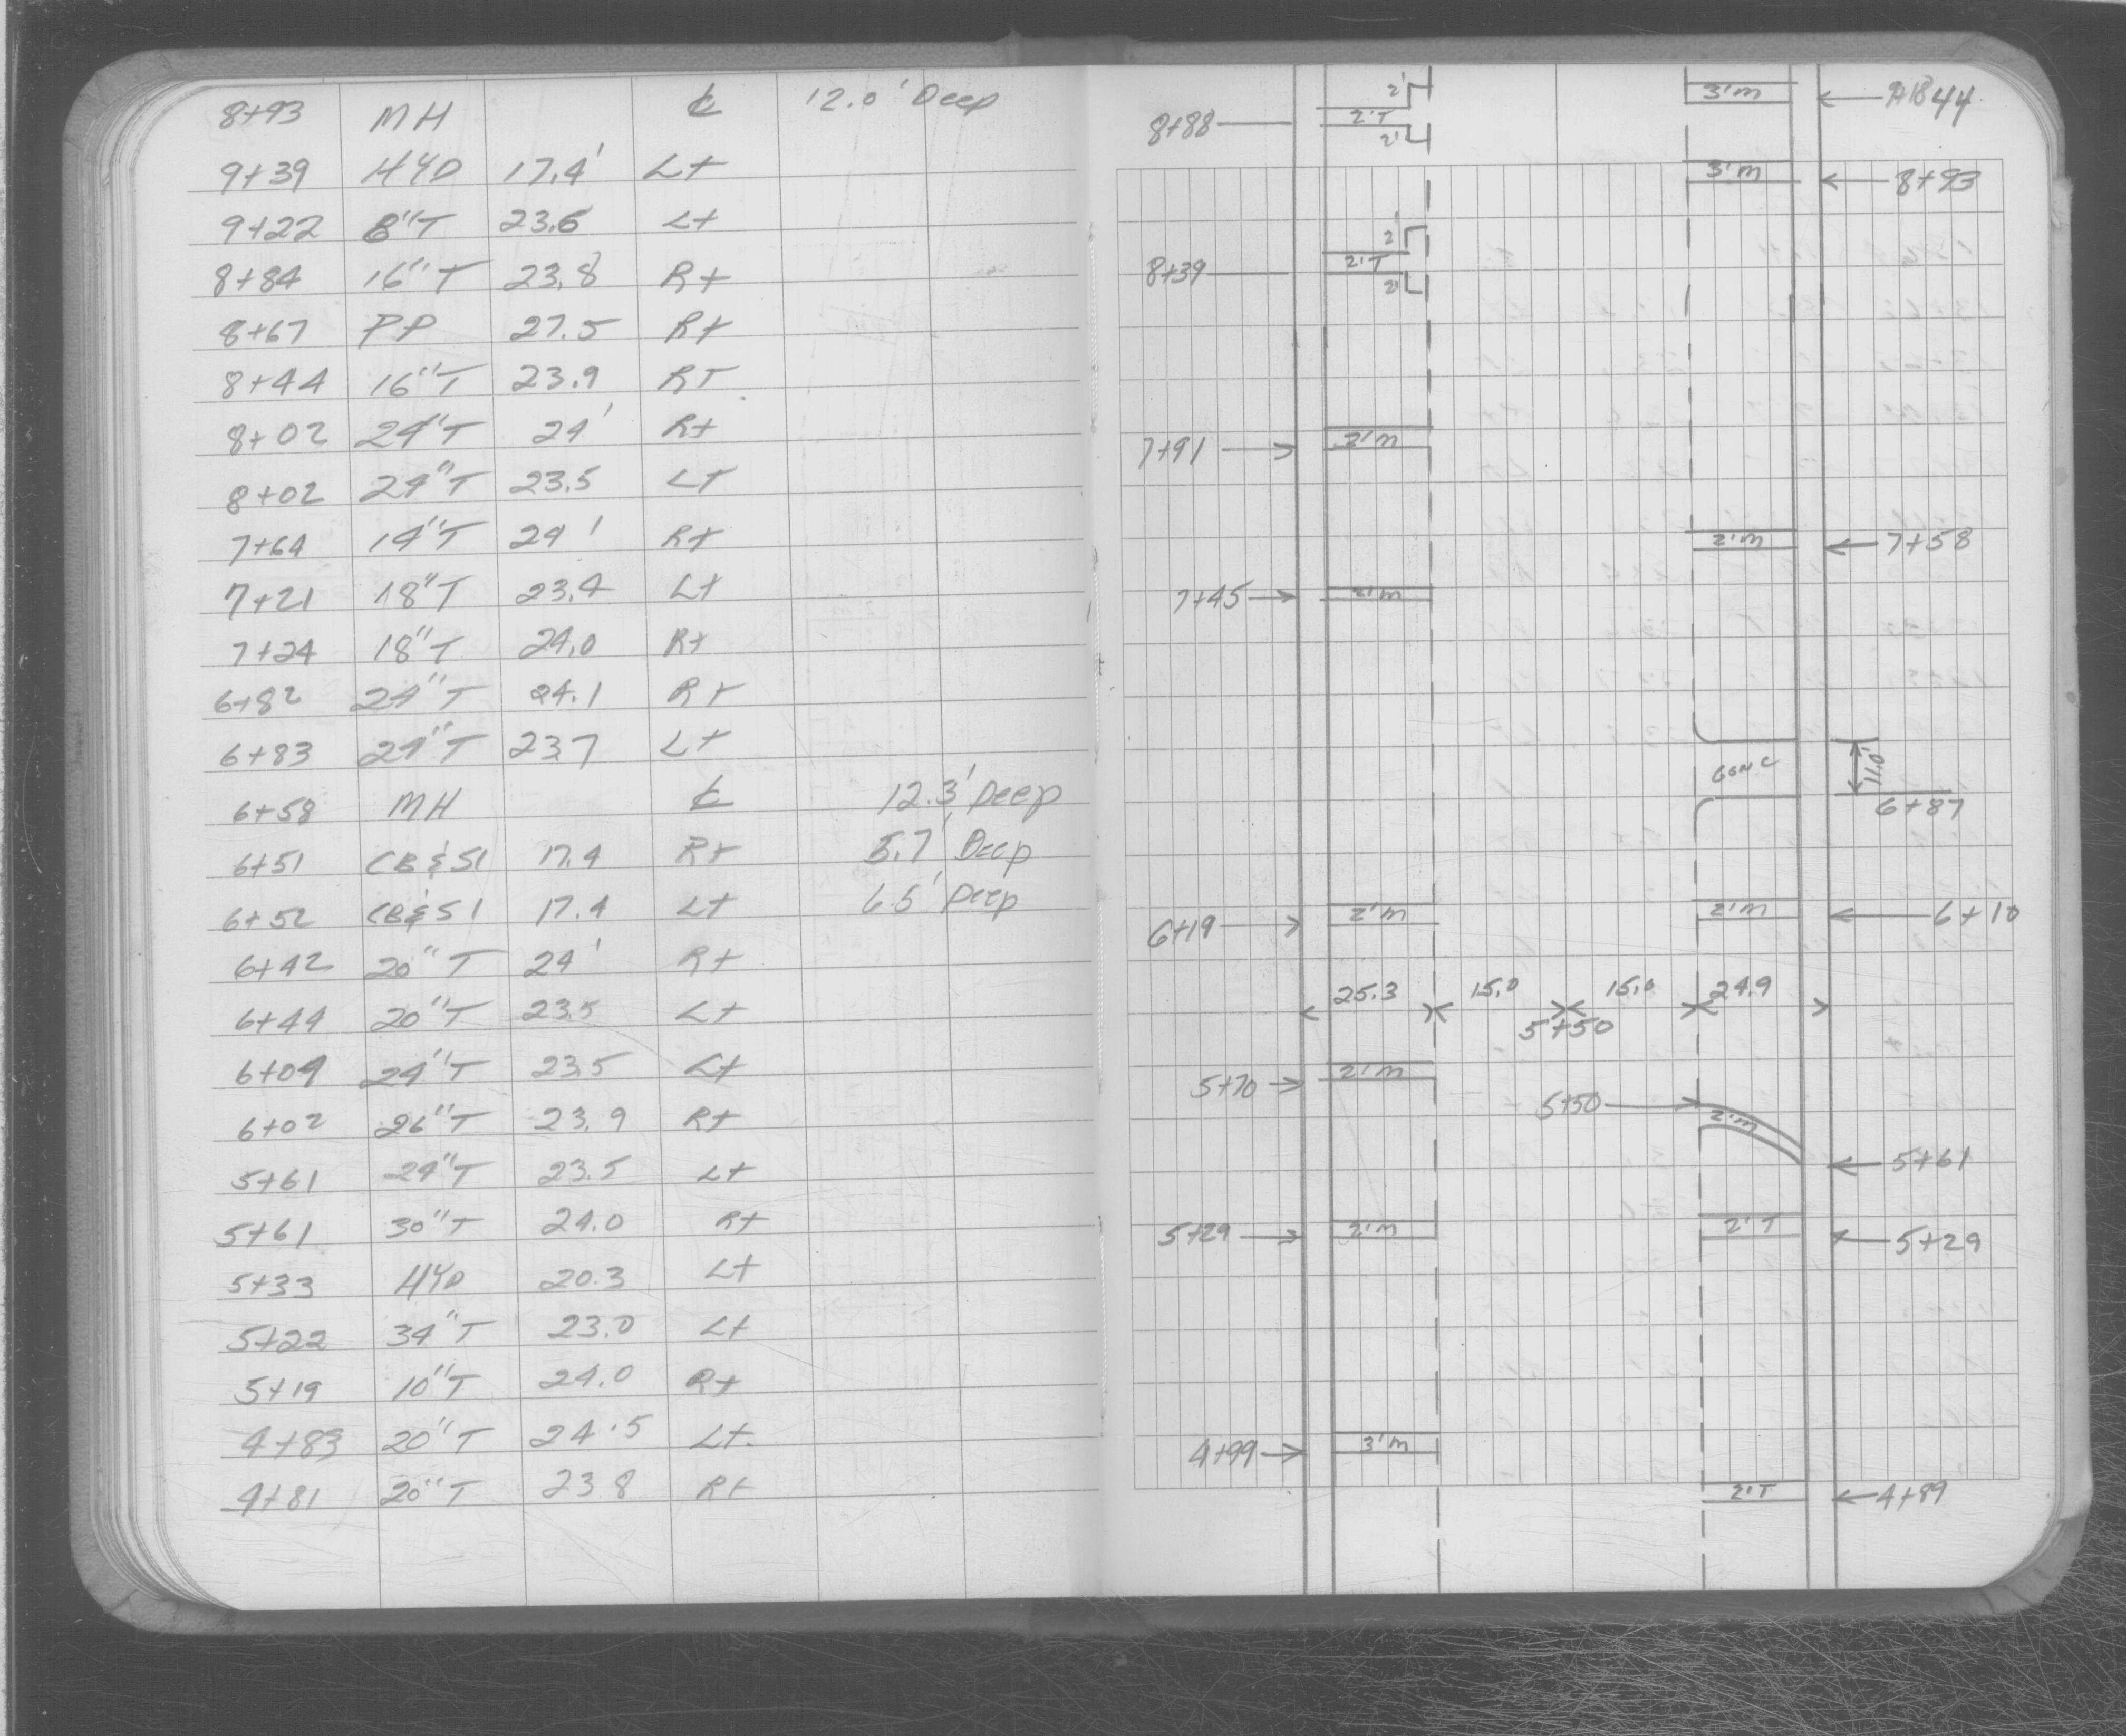 8+93 MH ℄ 12.0' Deep
9+39 HYD 17.4' Lt
9+22 8"T 23.6 Lt
8+84 16"T 23.8 Rt
8+67 PP 27.5 Rt
8+44 16"T 23.9 RT
8+02 24"T 24' Rt
8+02 24"T 23.5 LT
7+64 14"T 24' Rt
7+21 18"T 23.4 Lt
7+24 18"T 24.0 Rt
6+82 24"T 24.1 Rt
6+83 24"T 23.7 Lt
6+58 MH ℄ 12.3' Deep
6+51 CB & SI 17.4 Rt 5.7' Deep
6+52 CB & SI 17.4 Lt 6.5' Deep
6+42 20"T 24' Rt
6+44 20"T 23.5 Lt
6+04 24"T 23.5 Lt
6+02 26"T 23.9 Rt
5+61 24"T 23.5 Lt
5+61 30"T 24.0 Rt
5+33 HYD 20.3 Lt
5+22 34"T 23.0 Lt
5+19 10"T 24.0 Rt
4+83 20"T 24.5 Lt.
4+81 20"T 23.8 Rt
2' 3'M 44
8+88 2'T
2'
3'M 8+93
2'
8+39 2'T
2'
7+91 2'M
2'M 7+58
7+45 2'M
CONC 11.0'
6+87
6+19 2'M 2'M 6+10
25.3 15.0 15.0 24.9
5+50
5+70 2'M
5+50 2'M
5+61
5+29 2'M 2'T 5+29
4+99 3'M
2'T 4+89